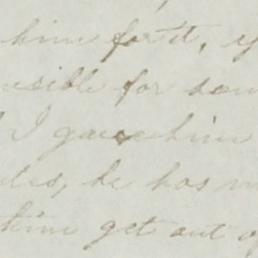 him for it, y
nsible for som
I gave him
des, he has m
him get out of